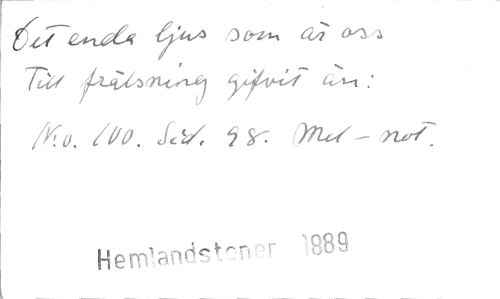 Det enda ljus som är oss
Till frälsning gifvit än:
N:o. 100. Sid. 98. Mel-not.
Hemlandstoner 1889